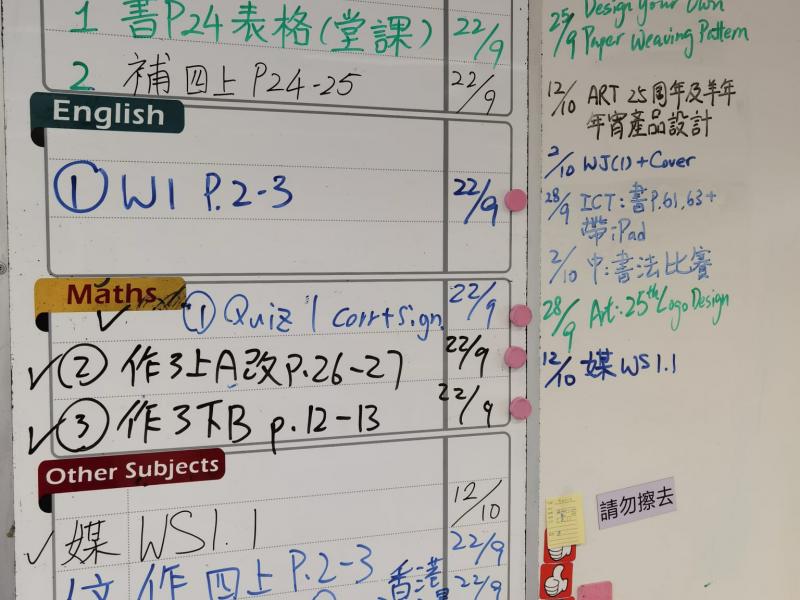 1 書P24表格(堂課) 22/9
2 補四上P24-25 22/9
English
① W1 P.2-3 22/9
Maths
✓ ① Quiz 1 corr+sign. 22/9
✓ ② 作3上A改P.26-27 22/9
✓ ③ 作3下B p.12-13 22/9
Other Subjects
✓ 媒 WS1.1 12/10
作四上P.2-3 22/9
香港 22/9
25/9 Design Your Own
Paper Weaving Pattern
12/10 ART 25周年及羊年
年宵產品設計
2/10 WJ(1)+Cover
28/9 ICT:書P.61,63+
帶iPad
2/10 中:書法比賽
28/9 Art:25th Logo Design
12/10 媒 WS1.1
請勿擦去